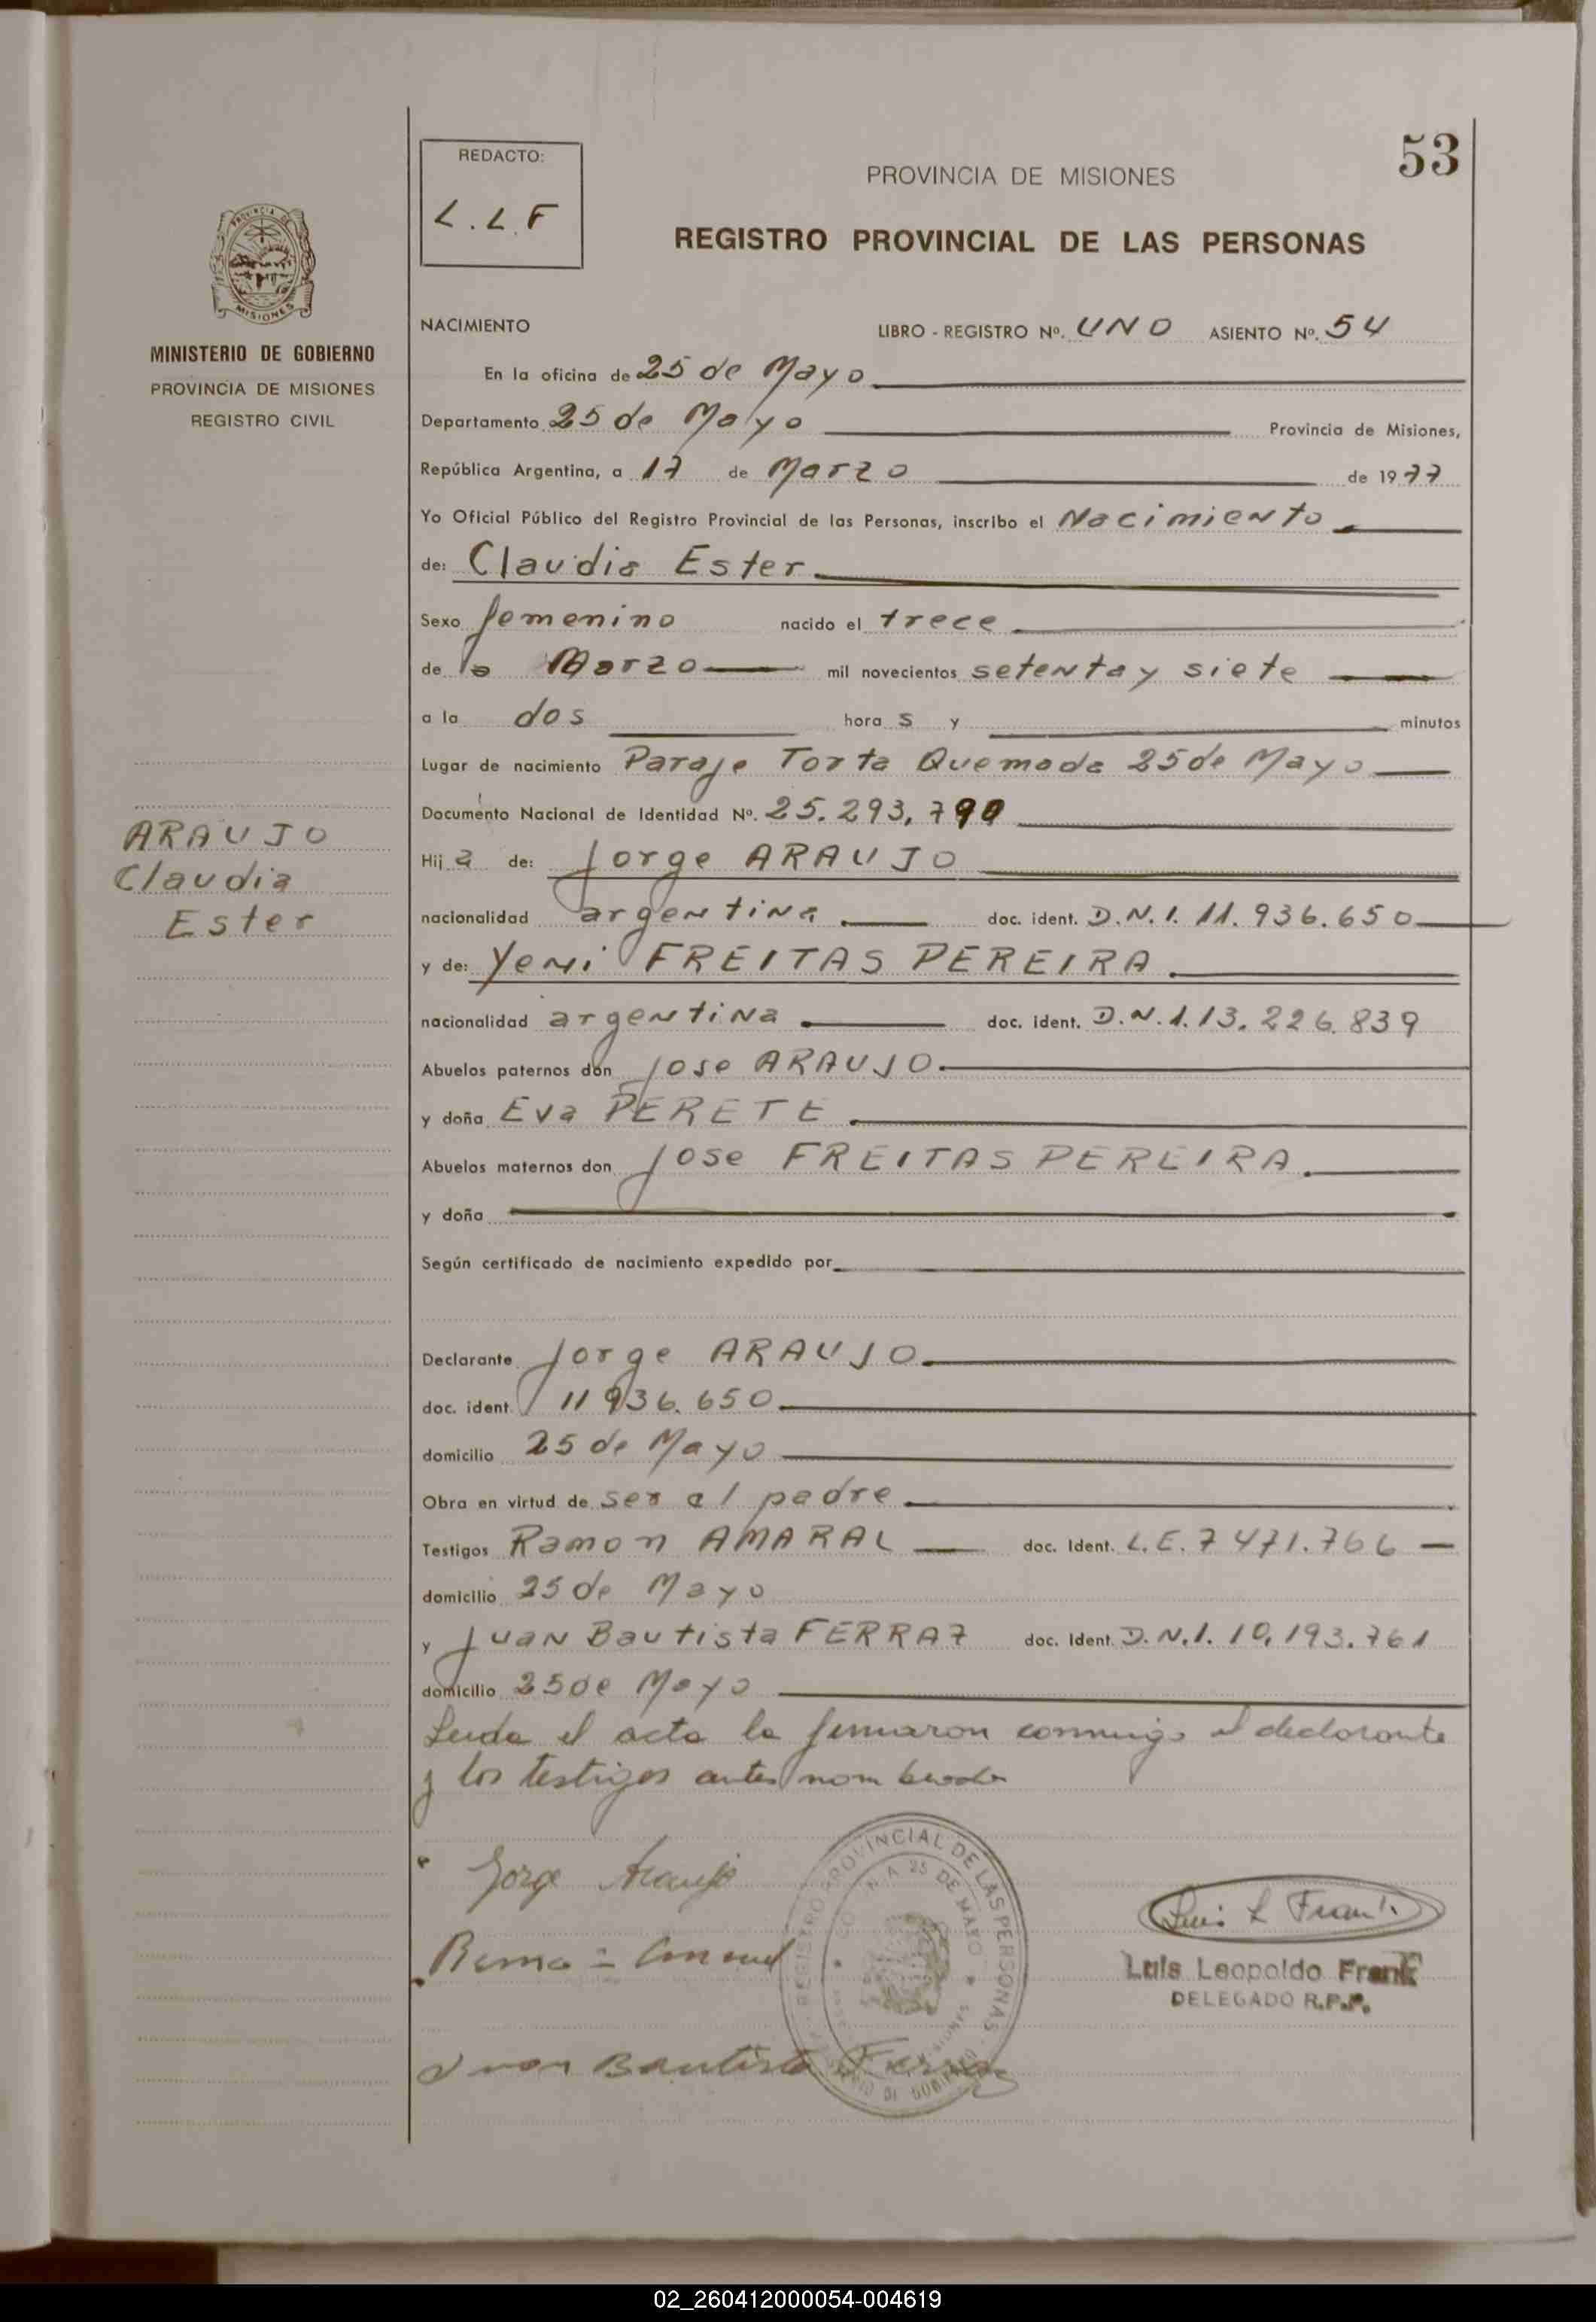 53
REDACTO:
L.L.F
PROVINCIA DE MISIONES
REGISTRO PROVINCIAL DE LAS PERSONAS
MINISTERIO DE GOBIERNO
PROVINCIA DE MISIONES
REGISTRO CIVIL
ARAUJO
Claudia
Ester
NACIMIENTO
LIBRO - REGISTRO Nº. UNO ASIENTO Nº. 54
En la oficina de 25 de Mayo
Departamento 25 de Mayo Provincia de Misiones,
República Argentina, a 17 de Marzo de 1977
Yo Oficial Público del Registro Provincial de las Personas, inscribo el Nacimiento
de: Claudia Ester
Sexo femenino nacido el trece
de Marzo mil novecientos setenta y siete
a la dos hora s y minutos
Lugar de nacimiento Paraje Torta Quemada 25 de Mayo
Documento Nacional de Identidad Nº. 25.293,790
Hij a de: Jorge ARAUJO
nacionalidad argentina doc. ident. D.N.I. 11.936.650
y de: Yeni FREITAS PEREIRA
nacionalidad argentina doc. ident. D.N.I. 13.226.839
Abuelos paternos don Jose ARAUJO
y doña Eva PERETE
Abuelos maternos don Jose FREITAS PEREIRA
y doña
Según certificado de nacimiento expedido por
Declarante Jorge ARAUJO
doc. ident. 11 936.650
domicilio 25 de Mayo
Obra en virtud de ser el padre
Testigos Ramon AMARAL doc. Ident. L.E. 7 471.766
domicilio 25 de Mayo
y Juan Bautista FERRAZ doc. Ident. D.N.I. 10,193.761
domicilio 25 de Mayo
Leida el acta la firmaron conmigo el declarante
y los testigos antes nombrados
Jorge Araujo
Juan Bautista
REGISTRO PROVINCIAL DE LAS PERSONAS
25 DE MAYO
Luis L Frank
Luis Leopoldo Frank
DELEGADO R.P.P.
02_260412000054-004619